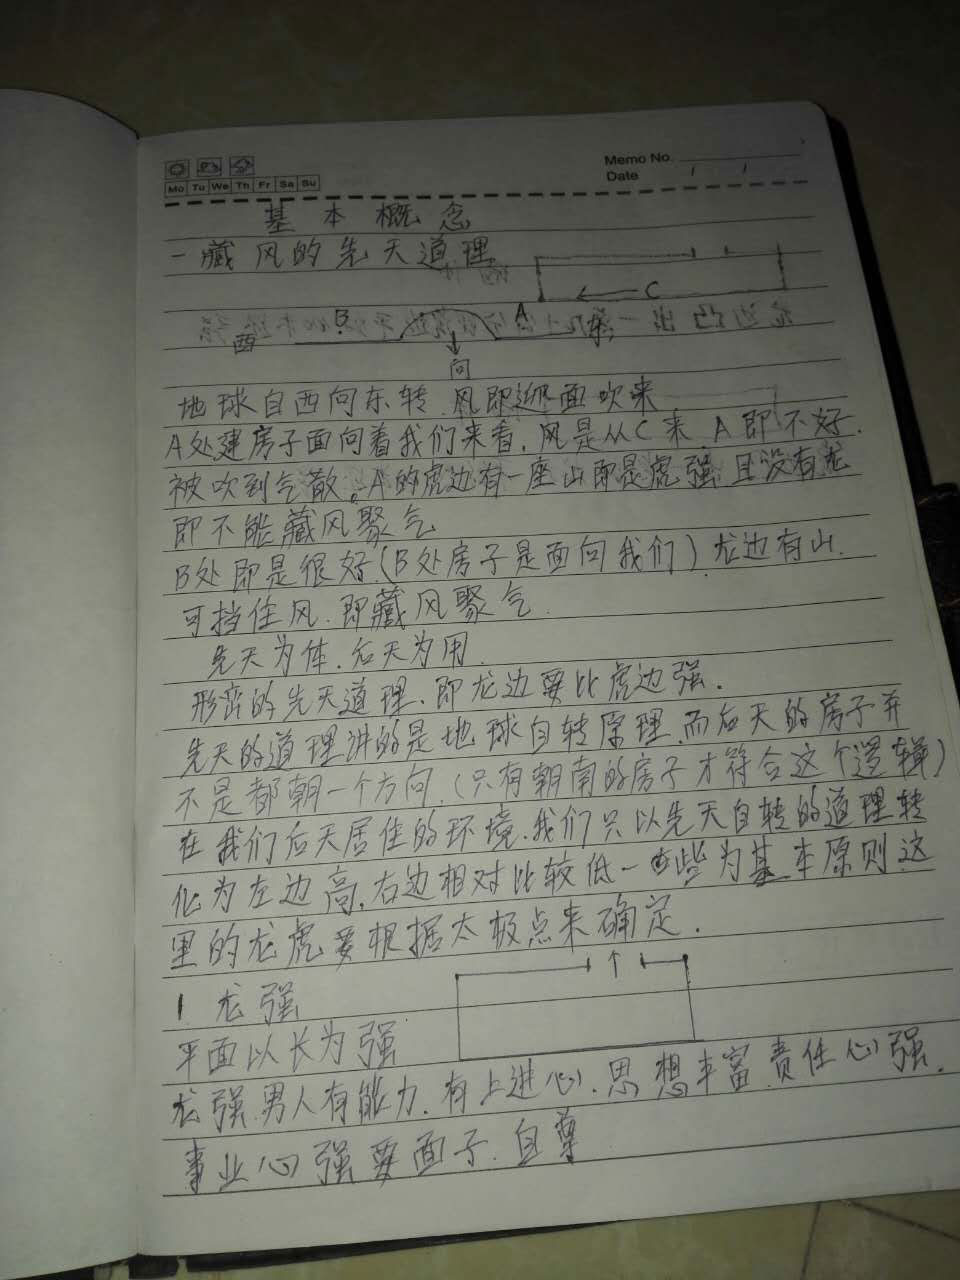 Memo No.
Date
Mo Tu We Th Fr Sa Su
基本概念
一藏风的先天道理
C
B A
西 东
向
地球自西向东转.风即迎面吹来
A处建房子面向着我们来看.风是从C来.A即不好.
被吹到气散。A的虎边有一座山即是虎强.且没有龙
即不能藏风聚气
B处即是很好.(B处房子是面向我们).龙边有山.
可挡住风.即藏风聚气.
先天为体.后天为用.
形峦的先天道理.即龙边要比虎边强.
先天的道理讲的是地球自转原理.而后天的房子并
不是都朝一个方向.(只有朝南的房子才符合这个逻辑)
在我们后天居住的环境.我们只以先天自转的道理转
化为左边高.右边相对比较低一些为基本原则.这
里的龙虎要根据太极点来确定.
1 龙强
平面以长为强
龙强.男人有能力.有上进心.思想丰富.责任心强.
事业心强要面子.自尊